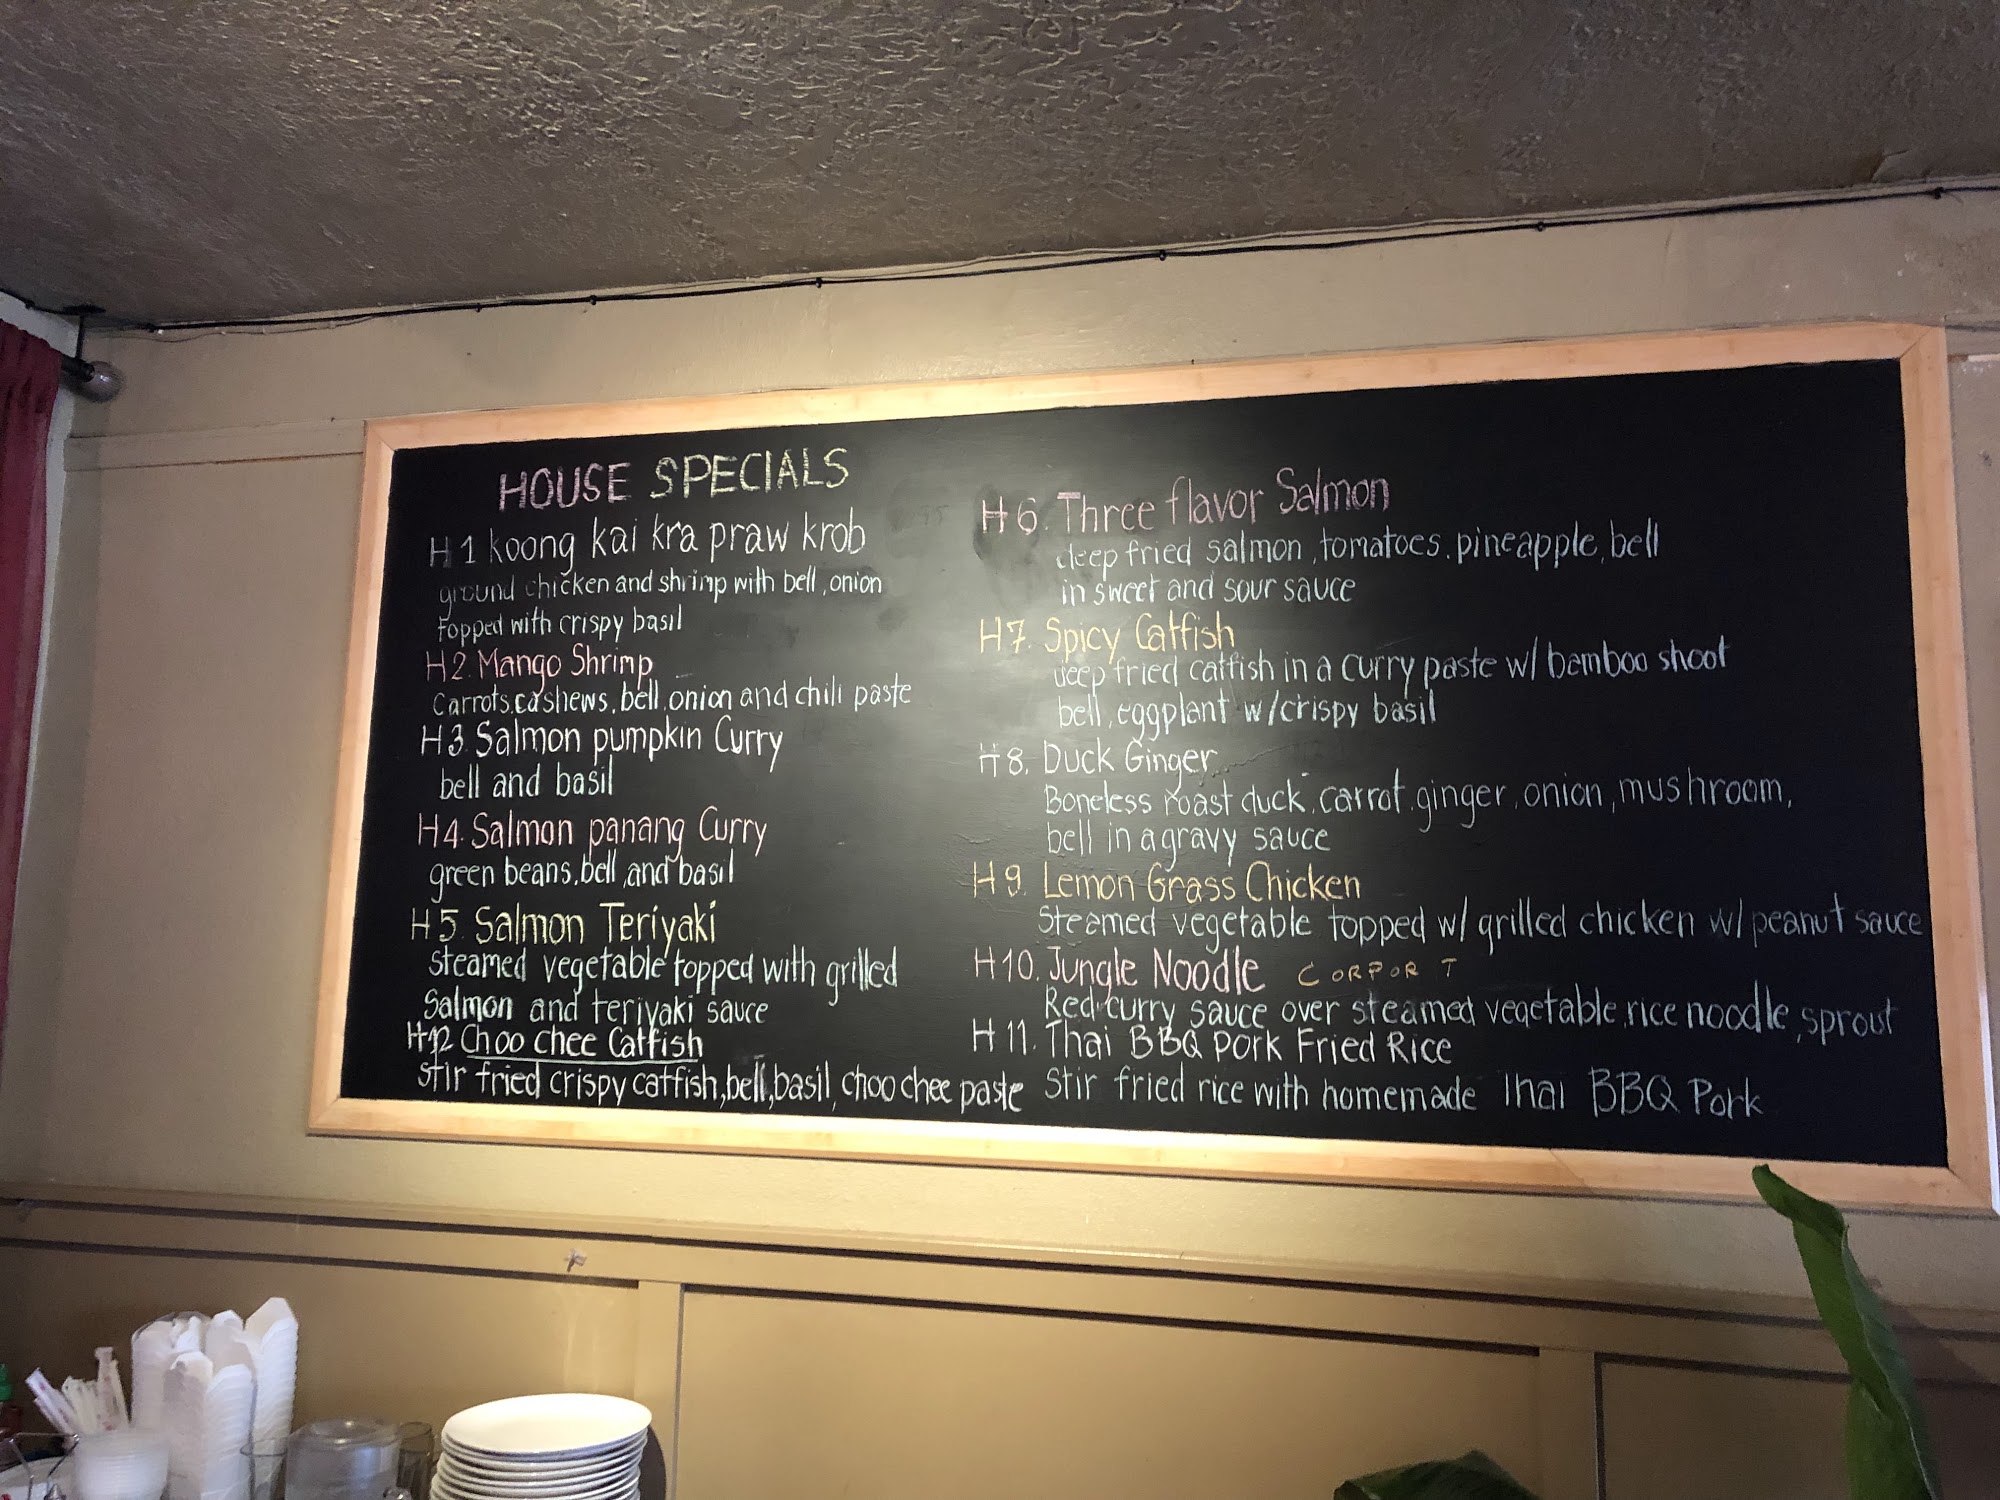 HOUSE SPECIALS
H 1 koong kai kra praw krob
ground chicken and shrimp with bell, onion
topped with crispy basil
H2. Mango Shrimp
Carrots, cashews, bell, onion and chili paste
H3. Salmon pumpkin Curry
bell and basil
H4. Salmon panang Curry
green beans, bell, and basil
H5. Salmon Teriyaki
steamed vegetable topped with grilled
Salmon and teriyaki sauce
H12 Choo chee Catfish
stir fried crispy catfish, bell, basil, choo chee paste
H6. Three flavor Salmon
deep fried salmon, tomatoes, pineapple, bell
in sweet and sour sauce
H7. Spicy Catfish
deep fried catfish in a curry paste w/ bamboo shoot
bell, eggplant w/crispy basil
H8. Duck Ginger
Boneless roast duck, carrot, ginger, onion, mushroom,
bell in a gravy sauce
H9. Lemon Grass Chicken
Steamed vegetable topped w/ grilled chicken w/ peanut sauce
H10. Jungle Noodle CORPOR T
Red curry sauce over steamed vegetable, rice noodle, sprout
H11. Thai BBQ Pork Fried Rice
Stir fried rice with homemade Thai BBQ Pork